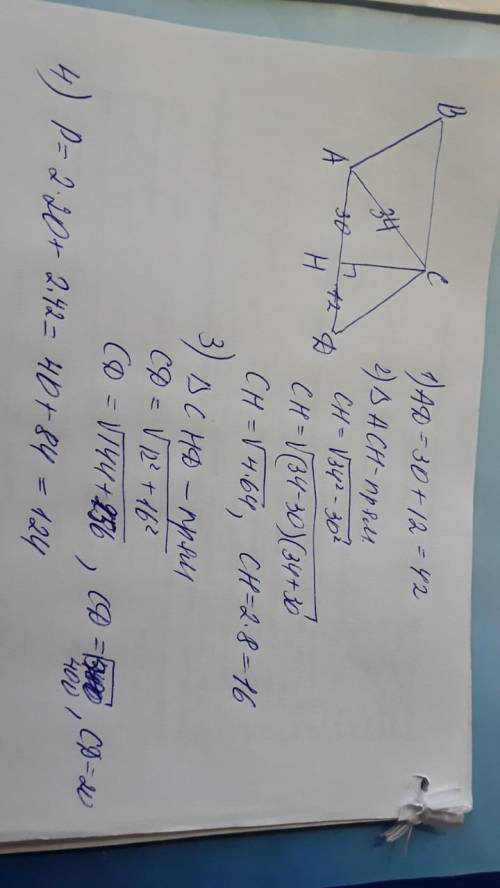 B
C
34
A
30
H
12
D
1) AD = 30 + 12 = 42
2) △ ACH - прям
CH = √34² - 30²
CH = √(34-30)(34+30
CH = √4·64, CH = 2·8 = 16
3) △ CHD - прям
CD = √12² + 16²
CD = √144 + 256, CD = √400, CD = 20
4) P = 2·20 + 2·42 = 40 + 84 = 124